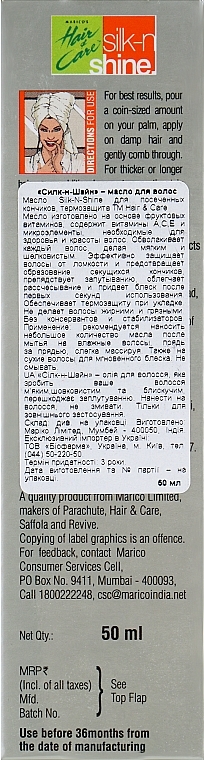 MARICO'S
Hair & Care
silk-n
shine
DIRECTIONS FOR USE
For best results, pour
a coin-sized amount
on your palm, apply
on damp hair and
gently comb through.
For thicker or longer
«Силк-н-Шайн» – масло для волос
Масло Silk-N-Shine для посеченных
кончиков, термозащита ТМ Hair & Care
Масло изготовлено на основе фруктовых
витаминов, содержит витамины А,С,Е и
микроэлементы, необходимые для
здоровья и красоты волос. Обволакивает
каждый волос делая мягким и
шелковистым. Эффективно защищает
волосы от ломкости и предотвращает
образование секущихся кончиков,
препятствует запутыванию, облегчает
расчесывание и придает блеск после
первых секунд использования
Обеспечивает термозащиту при укладке.
Не делает волосы жирными и грязными.
Без консервантов и стабилизаторов.
Применение: рекомендуется наносить
небольшое количество масла после
мытья на влажные волосы, прядь
за прядью, слегка массируя. Также на
сухие волосы для мгновенного блеска. Не
смывать.
UA «Силк-н-Шайн» – олія для волосся, яке
зробить ваше волосся
м'яким,шовковистим та блискучим,
перешкоджає заплутуванню. Нанести на
волосся, не змивати. Тільки для
зовнішнього застосування.
Склад: див. на упаковці. Виготовлено:
Маріко Лімітед, Мумбей - 400050, Індія
Ексклюзивний імпортер в Україні:
ТОВ «Біофарма», Україна, м. Київ, тел.
(044) 50-220-50
Термін придатності: 3 роки.
Дата виготовлення та № партії – на
упаковці.
50 мл
A quality product from Marico Limited,
makers of Parachute, Hair & Care,
Saffola and Revive.
Copying of label graphics is an offence.
For feedback, contact Marico
Consumer Services Cell,
PO Box No. 9411, Mumbai - 400093,
Call 1800222248, csc@maricoindia.net
Net Qty.: 50 ml
MRP₹
(Incl. of all taxes) See
Mfd. Top Flap
Batch No.
Use before 36months from
the date of manufacturing